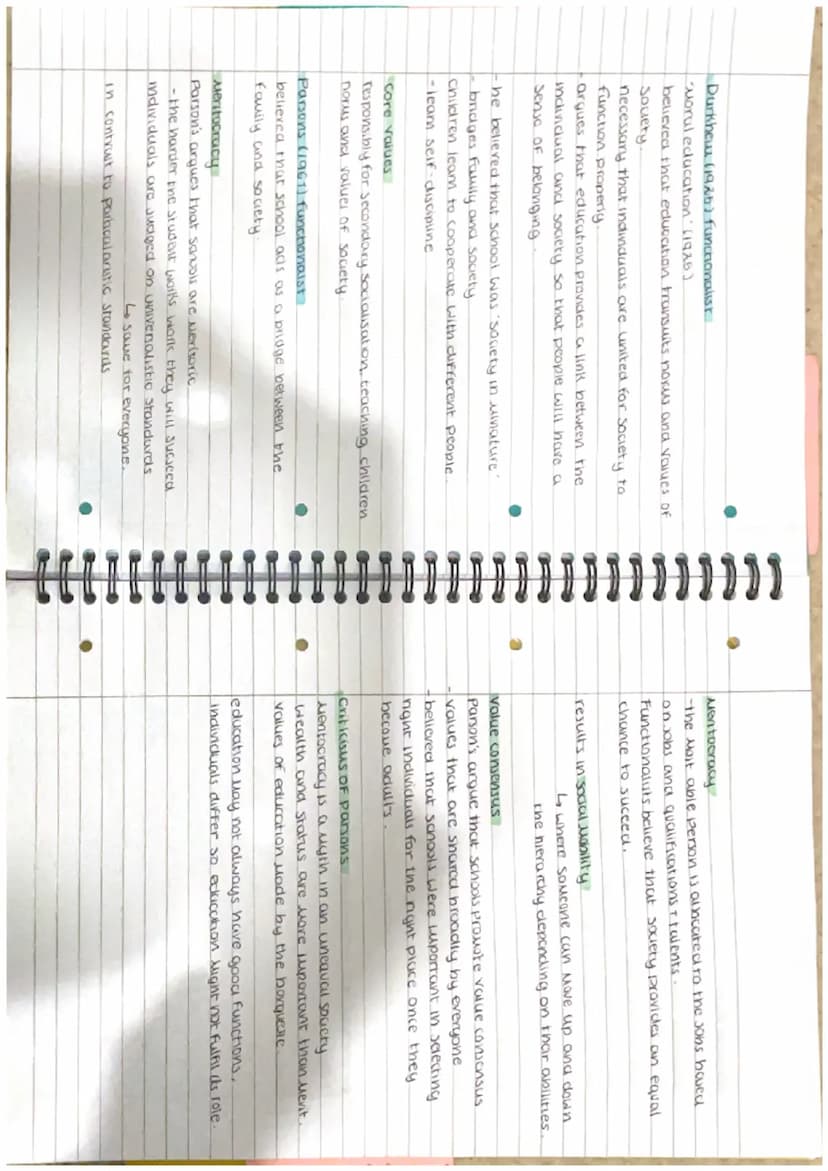 Durkheim (1925) functionalist
'Moral education' (1925)
believed that education transmits norms and values of
society.
necessary that individuals are united for society to
function properly.
- argues that education provides a link between the
individual and society so that people will have a
sense of belonging.
- he believed that school was 'society in miniature'
- bridges family and society
children learn to cooperate with different people.
- learn self-discipline
Core values
responsibly for secondary socialisation, teaching children
norms and values of society.
Parsons (1961) functionalist
believed that school acts as a bridge between the
family and society.
Meritocracy
Parson's argues that schools are meritoric
- the harder the student works work they will succeed
individuals are judged on universalistic standards
↳ same for everyone.
in contrast to particularistic standards
Meritocracy
- the most able person is allocated to the jobs based
on jobs and qualifications + talents.
Functionalists believe that society provides an equal
chance to suceed.
results in social mobility
↳ where someone can move up and down
the hierarchy depending on their abilities.
Value consensus
Parson's argue that schools promote value consensus
- values that are shared broadly by everyone
- believed that schools were important in selecting
right individuals for the right place once they
become adults.
Criticisms of parsons
Meritocracy is a myth in an unequal society
wealth and status are more important than merit.
values of education made by the
education may not always have good functions,
individuals differ so education might not fulfil its role.